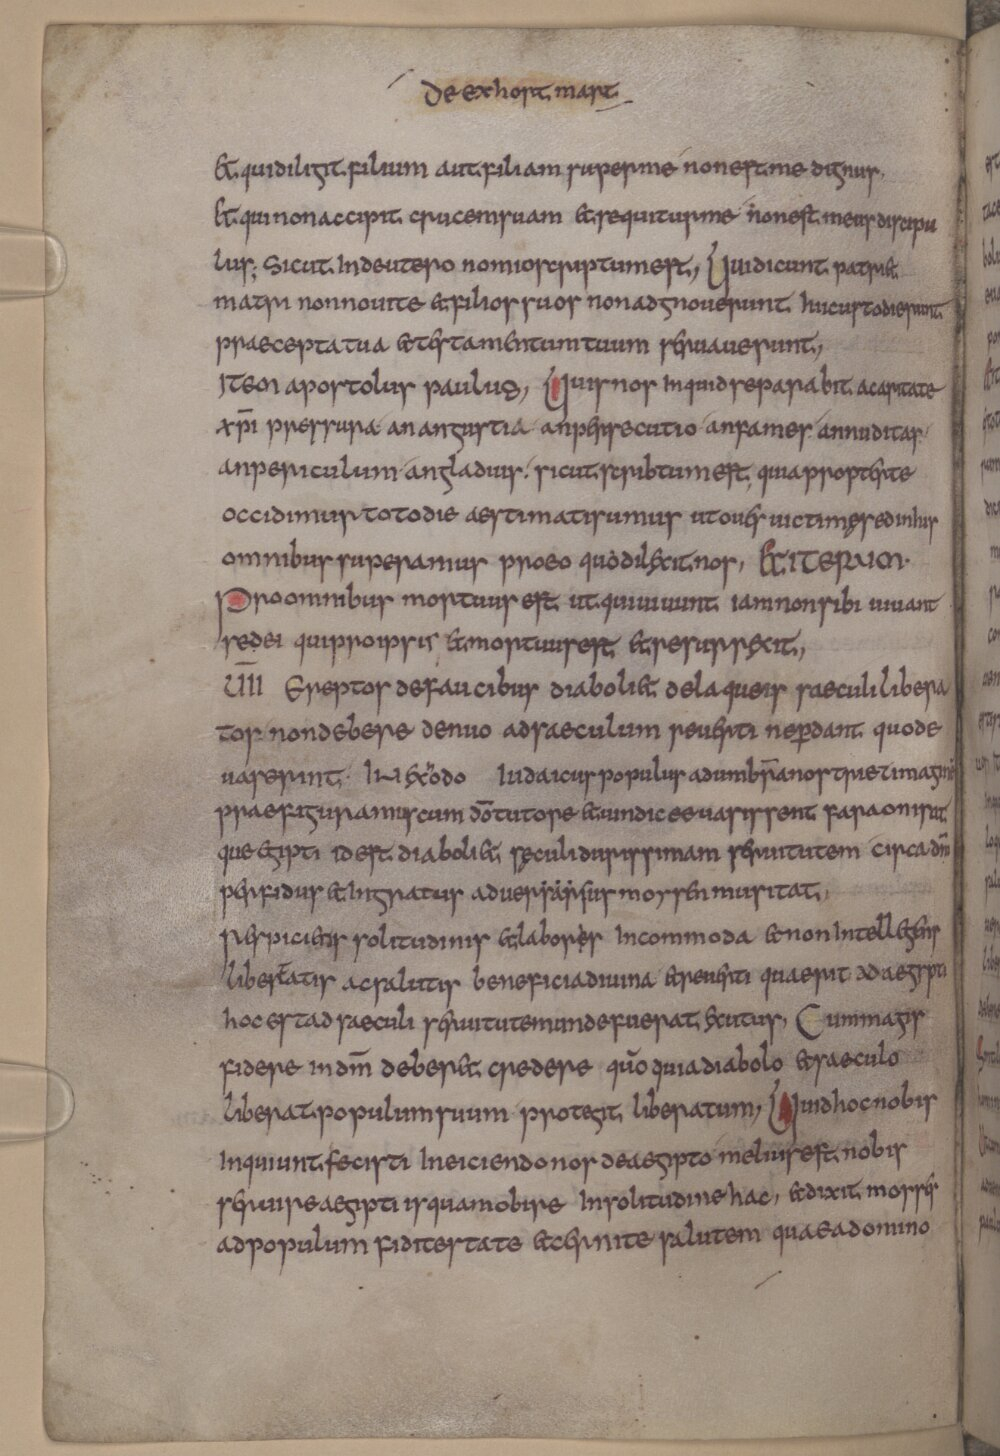 De exhort mart
Et qui diligit filium aut filiam super me non est me dignus,
Et qui non accipit crucem suam et sequitur me non est meus discipu
lus; Sicut In deuteronomio scriptum est, Qui dicunt patri et
matri non novi te et filios suos non adgnoverunt hi custodierunt
praecepta tua et testamentum tuum servaverunt,
ITEM apostolus paulus, Quis nos inquid separabit a caritate
xp̄i pressura an angustia an persecutio an fames an nuditas
an periculum an gladius. sicut scribtum est, quia propter te
occidimur toto die aestimati sumus ut oves victimę sed in his
omnibus superamus pro eo quo dilexit nos, ET ITERUM.
Pro omnibus mortuus est ut qui vivunt iam non sibi vivant
sed ei qui pro ipsis et mortuus est et resurrexit,
VIII Ereptos de faucibus diaboli et de laqueis saeculi libera
tos non debere denuo ad saeculum reverti ne perdant quod e
vaserint. IN Exodo Iudaicus populus ad umbrā nostri et imaginē
praefiguramus cum dō tutore et vindice evasissent faraonis ut
que egipti id est diaboli et sęculi durissimam servitutem circa dm̄
perfidus et Ingratus adversarsus moysen musitat,
respiciens solitudinis et labores Incommoda et non Intellegens
libertatis ac salutis beneficia divina et reverti quaerit ad aegipti
hoc est ad saeculi servitutem unde fuerat exutus, Cum magis
fidere in dm̄ deberet credere quō quia diabolo et saeculo
liberat populum suum protegit liberatum, Quid hoc nobis
Inquiunt fecisti In eiciendo nos de aegipto melius est nobis
servire aegiptiis quam obire In solitudine hac, et dixit moyses
ad populum fidite state et cernite salutem quae a domino